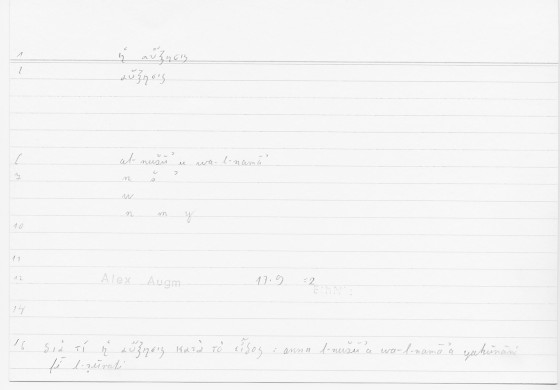 1 ἡ αὔξησις
αὔξησις
al-nušūʾu wa-l-namāʾ
n š ʾ
w
n m y
10
11
12 Alex Augm 17.9 :2
14
16 διὰ τί ἡ αὔξησις κατὰ τὸ εἶδος : anna l-nušūʾa wa-l-namāʾa yakūnāni
fī l-ṣūrati